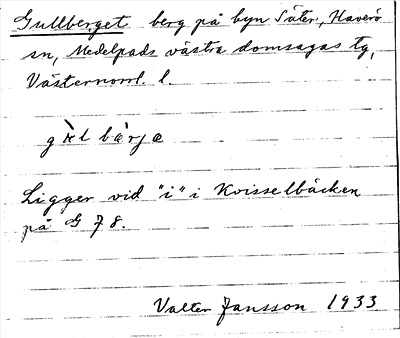 Gullberget berg på byn Säter, Haverö
sn, Medelpads västra domsagas tg,
Västernorrl. l.
Ligger vid "i" i Kvisselbäcken
på G 78.
Valter Jansson 1933